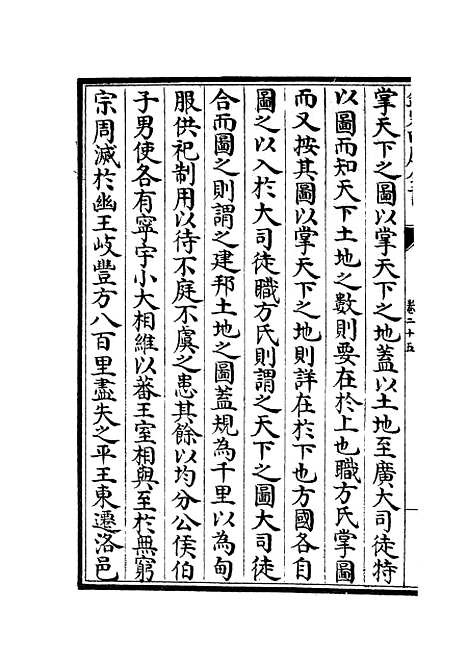 掌天下之圖以掌天下之地蓋以土地至廣大司徒特
以圖而知天下土地之數則要在於上也職方氏掌圖
而又按其圖以掌天下之地則詳在於下也方國各自
圖之以入於大司徒職方氏則謂之天下之圖大司徒
合而圖之則謂之建邦土地之圖蓋規為千里以為甸
服供祀制用以待不庭不虞之患其餘以均分公侯伯
子男使各有寧宇小大相維以蕃王室相與至於無窮
宗周滅於幽王岐豐方八百里盡失之平王東遷洛邑
卷二十五